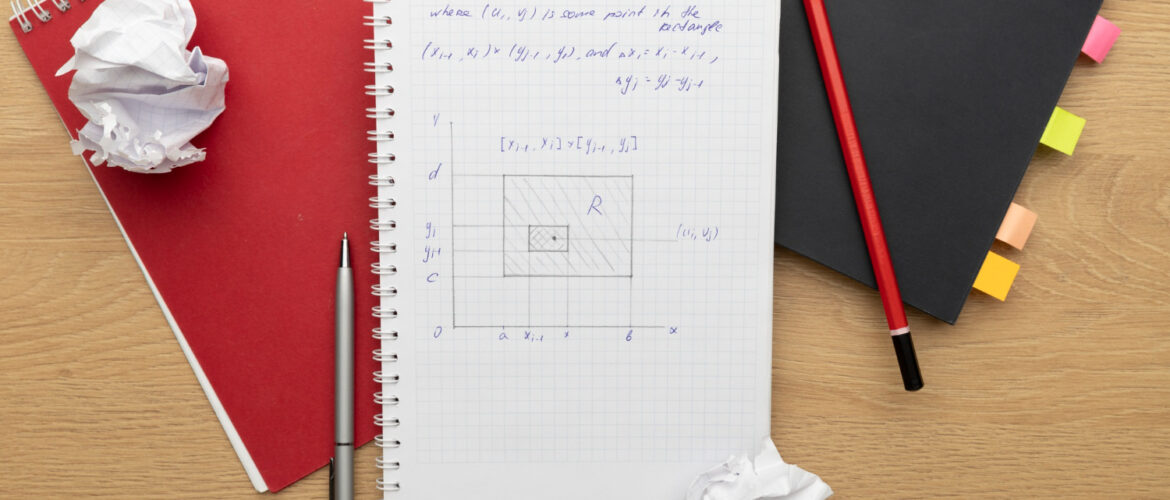 where (ui, vj) is some point in the
rectangle
(xi-1, xi) × (yj-1, yj), and Δxi = xi - xi-1,
Δyj = yj - yj-1
y
[xi-1, xi] × [yj-1, yj]
d
R
yj
(ui, vj)
yj-1
c
0 a xi-1 x b x